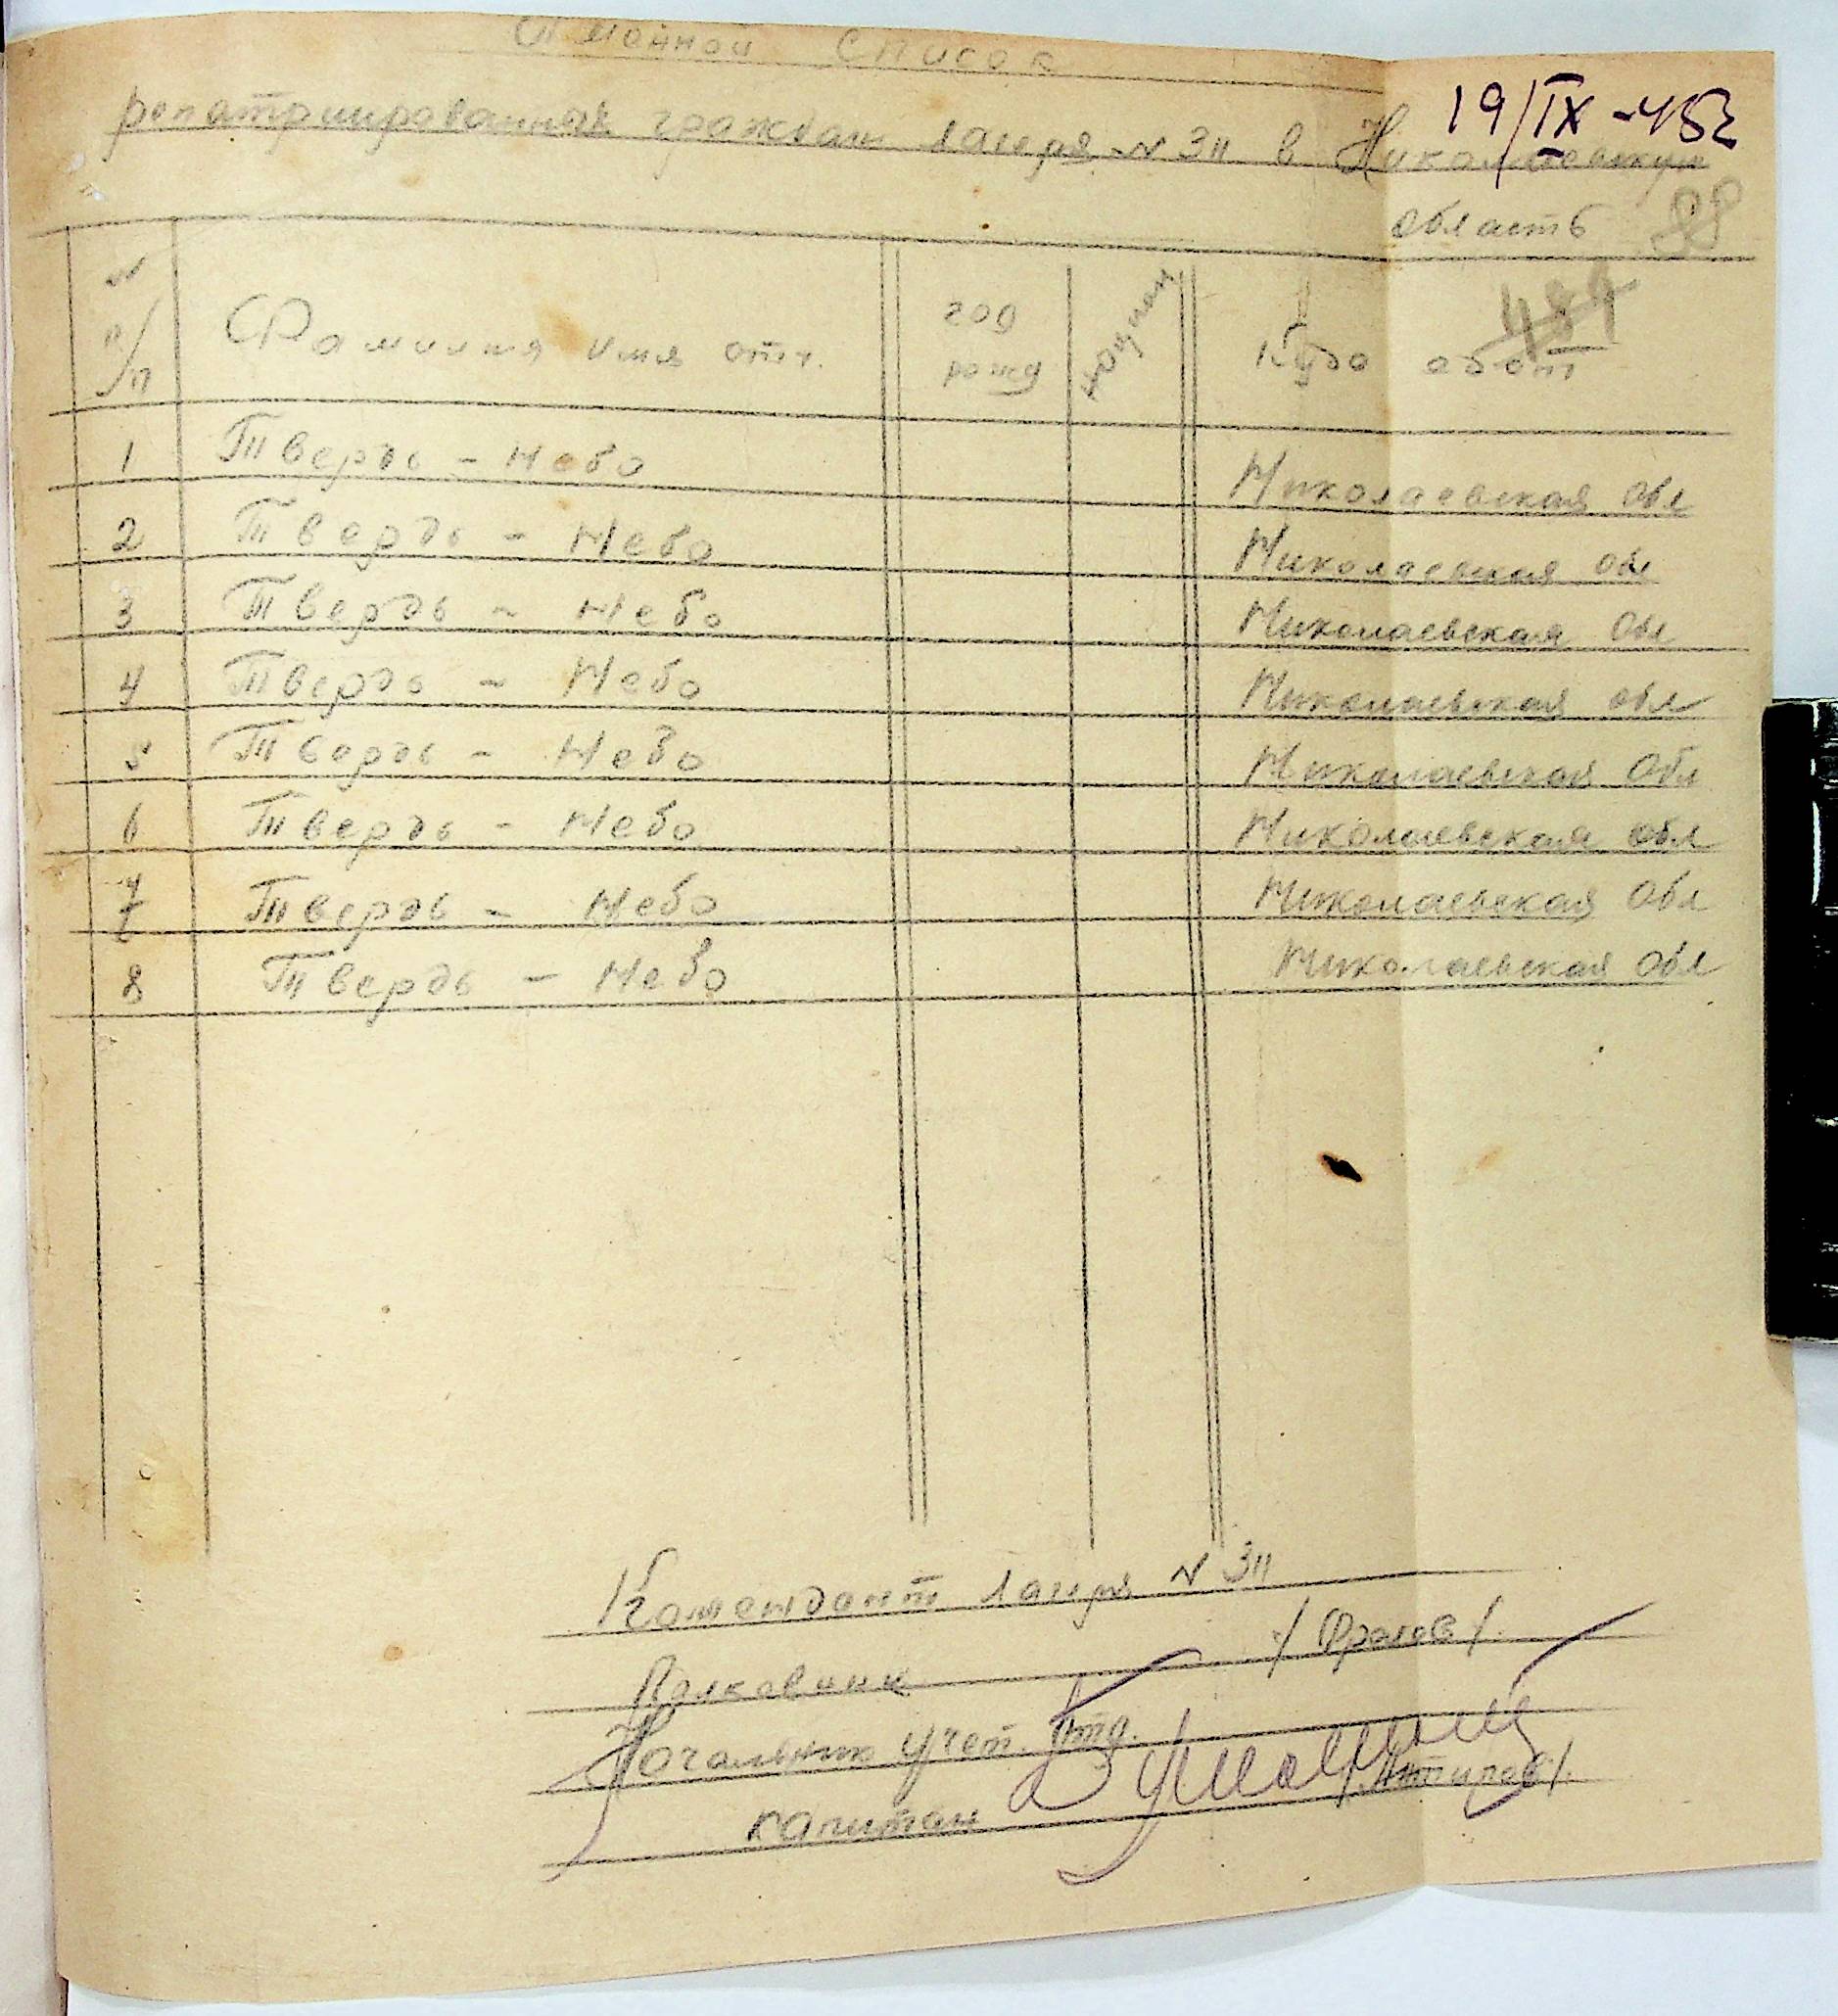 Имянной список
19/IX-45г
репатриированных граждан лагеря № 311 в Николаевскую
область 98
489
№ п/п Фамилия имя отч. год рожд национ Куда адот
1 Твердь - Небо Николаевская обл
2 Твердь - Небо Николаевская обл
3 Твердь - Небо Николаевская Обл
4 Твердь - Небо Николаевская обл
5 Твердь - Небо Николаевская Обл
6 Твердь - Небо Николаевская обл
7 Твердь - Небо Николаевская Обл
8 Твердь - Небо Николаевская Обл
Комендант лагеря № 311
Полковник /Фролов/.
Начальник Учет. Отд.
капитан /Антипов/.